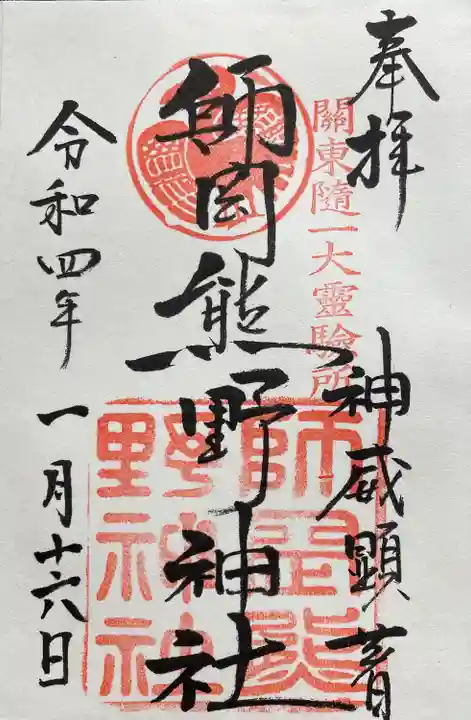 奉拝
關東隨一大靈驗所
神威顕著
師岡熊野神社
師岡熊
野神社
令和四年
一月十六日